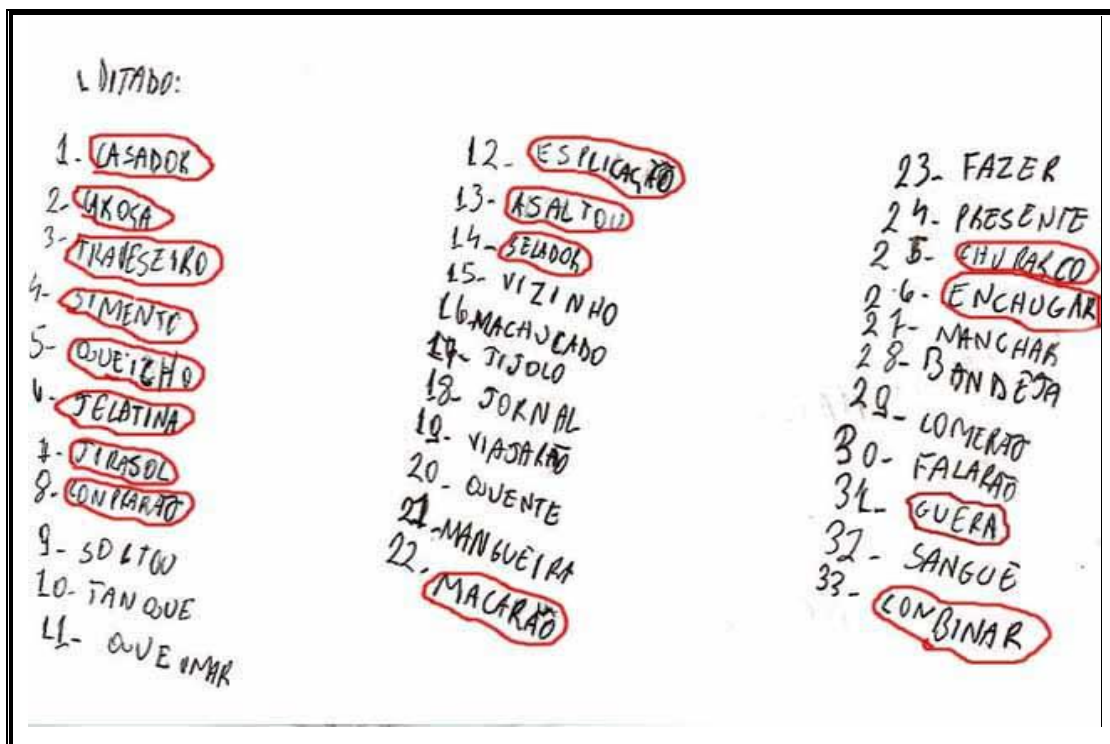 DITADO:
1- CASADOR
2- CAROÇA
3- TRAVESEIRO
4- SIMENTO
5- QUEICHO
6- JELATINA
7- JIRASOL
8- CONPRARÃO
9- SOLTOU
10- TANQUE
11- QUEIMAR
12- ESPLICAÇÃO
13- ASALTOU
14- SELADOR
15- VIZINHO
16- MACHUCADO
17- TIJOLO
18- JORNAL
19- VIAJARÃO
20- QUENTE
21- MANGUEIRA
22- MACARÃO
23- FAZER
24- PRESENTE
25- CHURASCO
26- ENCHUGAR
27- MANCHAR
28- BANDEJA
29- COMERÃO
30- FALARÃO
31- GUERA
32- SANGUE
33- CONBINAR